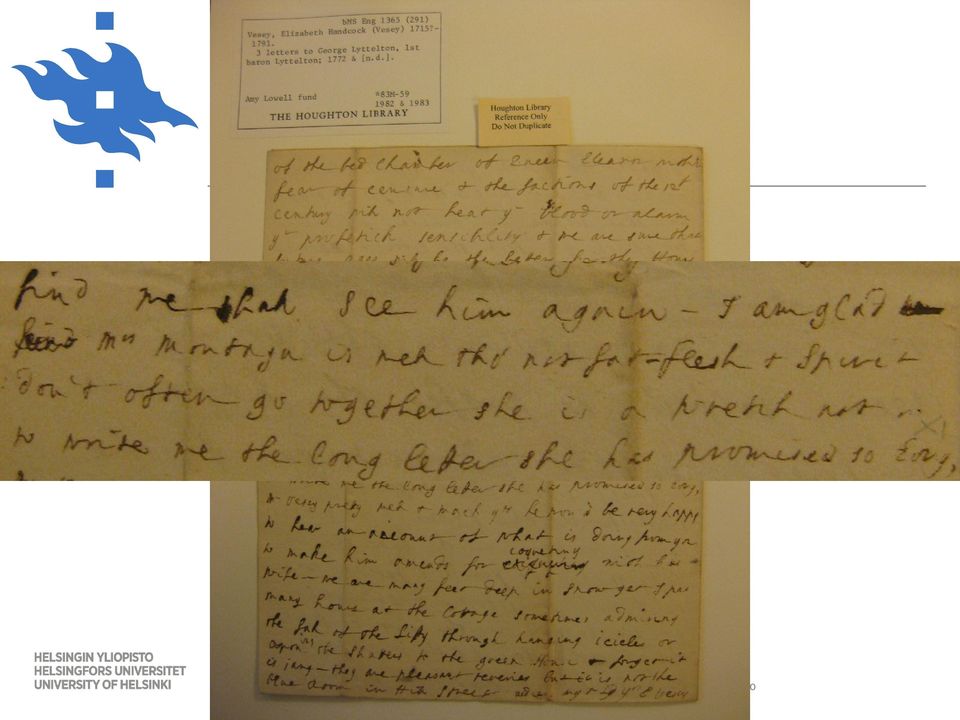 bMS Eng 1365 (291)
Vesey, Elizabeth Handcock (Vesey) 1715?-
1791.
3 letters to George Lyttelton, 1st
baron Lyttelton; 1772 & [n.d.].
Amy Lowell fund
*83M-59
1982 & 1983
THE HOUGHTON LIBRARY
Houghton Library
Reference Only
Do Not Duplicate
of the bed Chamber of Queen Eleanor
fear of censure & the factions of the 12t
century will not heat yr blood or alarm
yr prophetick sensibility & we are sure that
find we shall see him again - I am glad
find Mrs Montagu is well tho' not fat - flesh & Spirit
don't often go together she is a wretch not
to write me the long letter she has promised so long,
write me the long letter she has promised so long,
Mr Vesey pretty well & much yrs he wou'd be very happy
to hear an account of what is doing from you
to make him amends for coquetting with his
wife - we are many feet deep in snow yet I pass
many hours at the Cottage sometimes admiring
the fall of the Liffy through hanging icicle or
upon the Shutters to the green House & forget it
is - they are pleasant reveries but it is not the
blue room in Hill Street adieu my Ld yr E Vesey
HELSINGIN YLIOPISTO
HELSINGFORS UNIVERSITET
UNIVERSITY OF HELSINKI
0